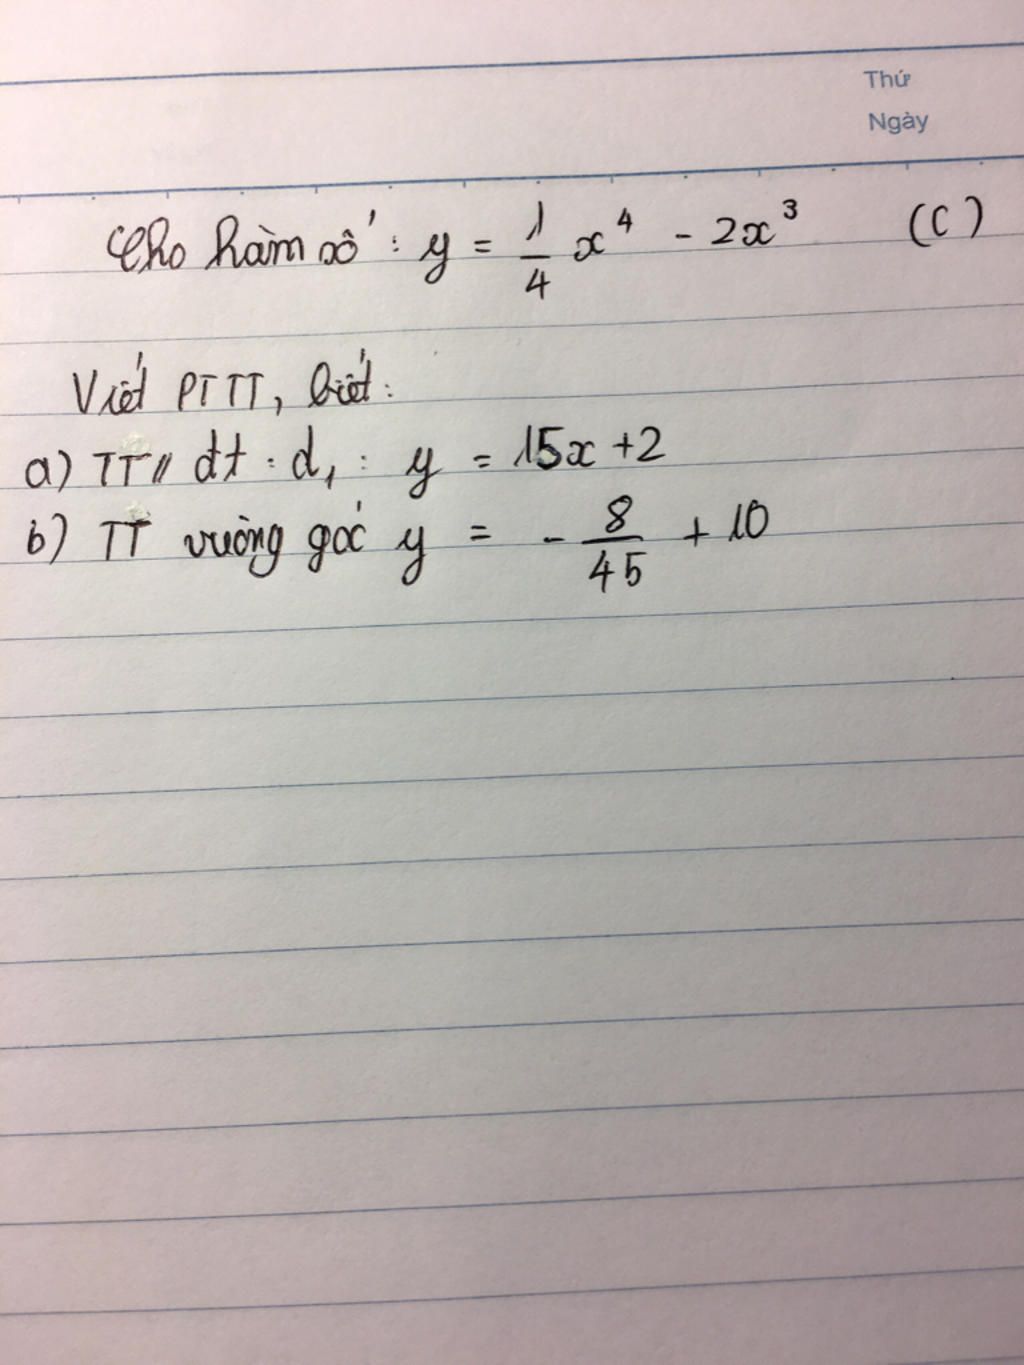 Thứ
Ngày
Cho hàm số : y = 1/4 x⁴ - 2x³ (C)
Viết PTTT, biết :
a) TT // đt : d₁ : y = 15x + 2
b) TT vuông góc y = - 8/45 + 10